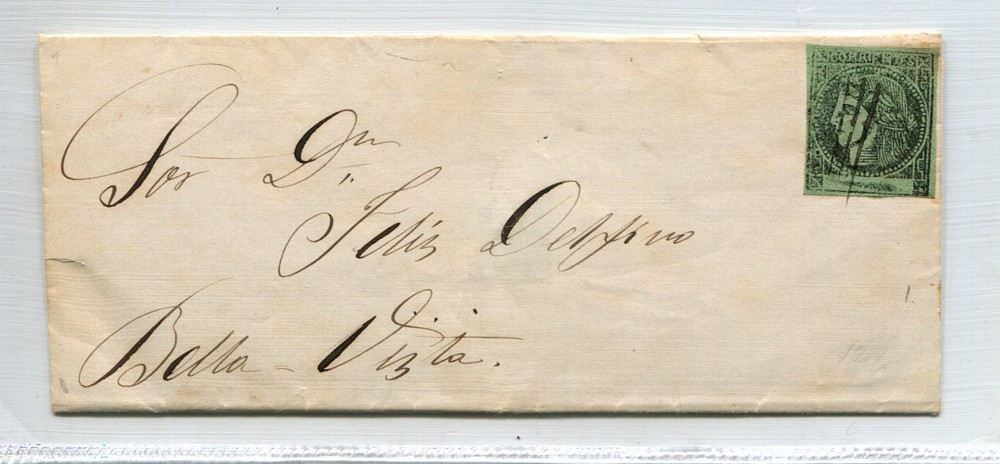 CORRIENTES
Sor Dn
Felix Delfino
Bella-Vista.
1.